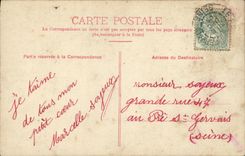 CARTE POSTALE
La Correspondance au recto n'est pas acceptée par tous les pays étrangers
(Se renseigner à la Poste)
Partie réservée à la Correspondance
Adresse du Destinataire
je t'aime
de tous mon
petit cœur
Marcelle Soyeux
monsieur Soyeux
grande rue 47
au Pré St Gervais
(Seine)